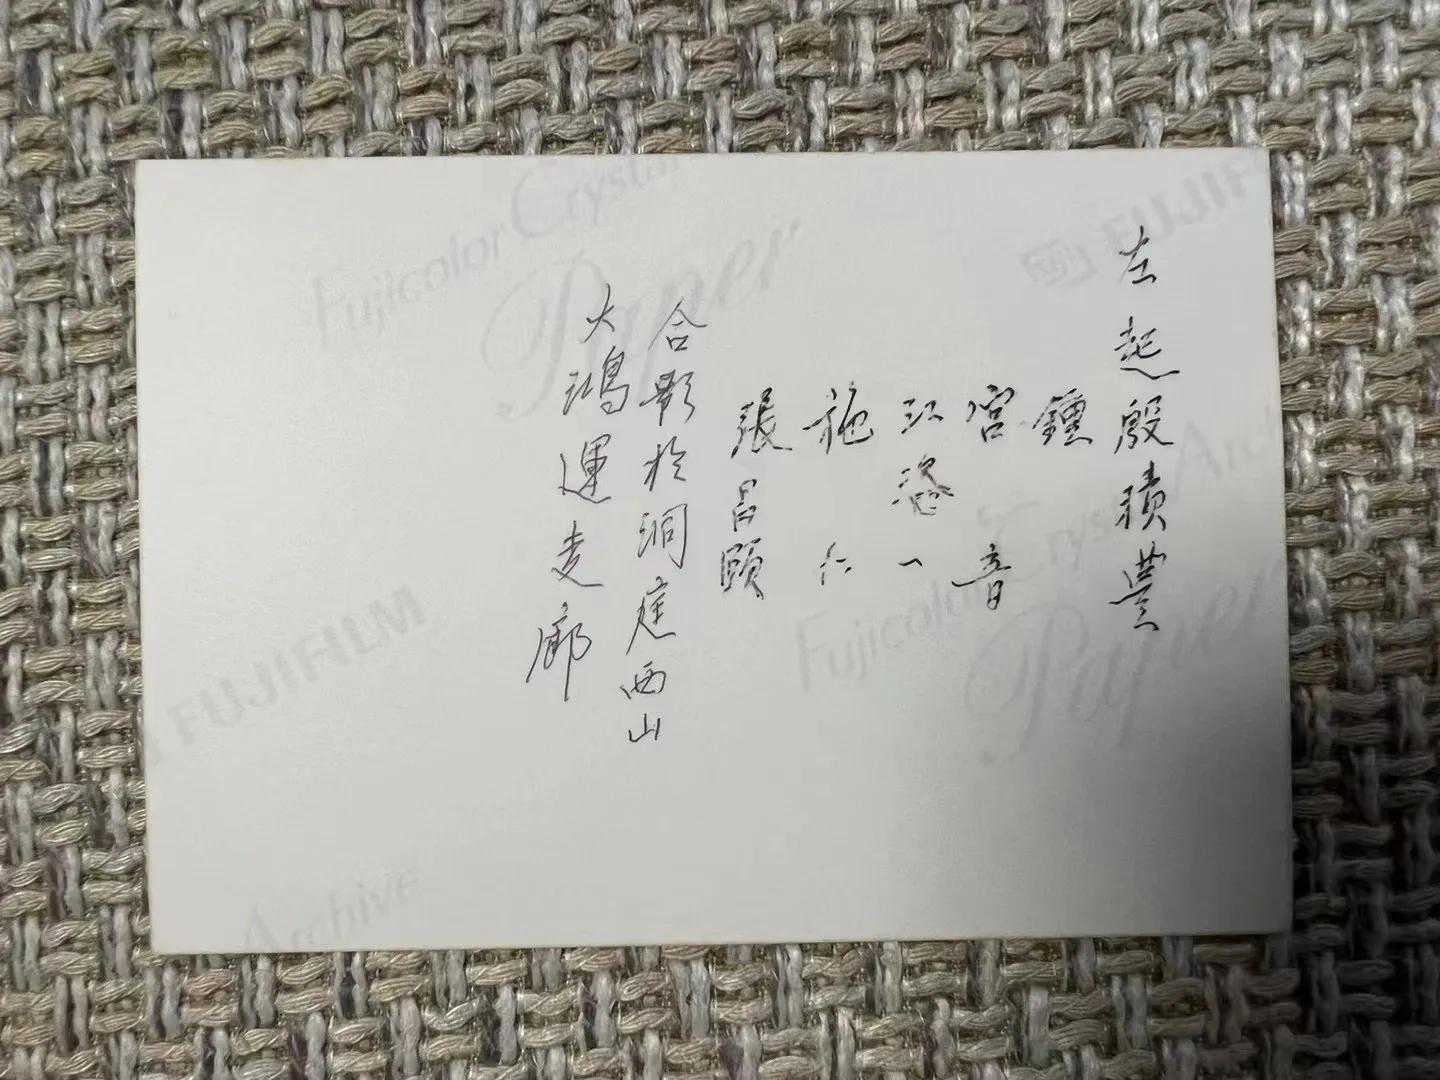 左起殷積豊
鍾
宮音
江恣一
施仁
張昌頤
合影於洞庭西山
大鴻運走廊
Fujicolor Crystal
Paper
FUJIFILM
Archive
FUJIF
Fujicolor Crystal Arch
Paper